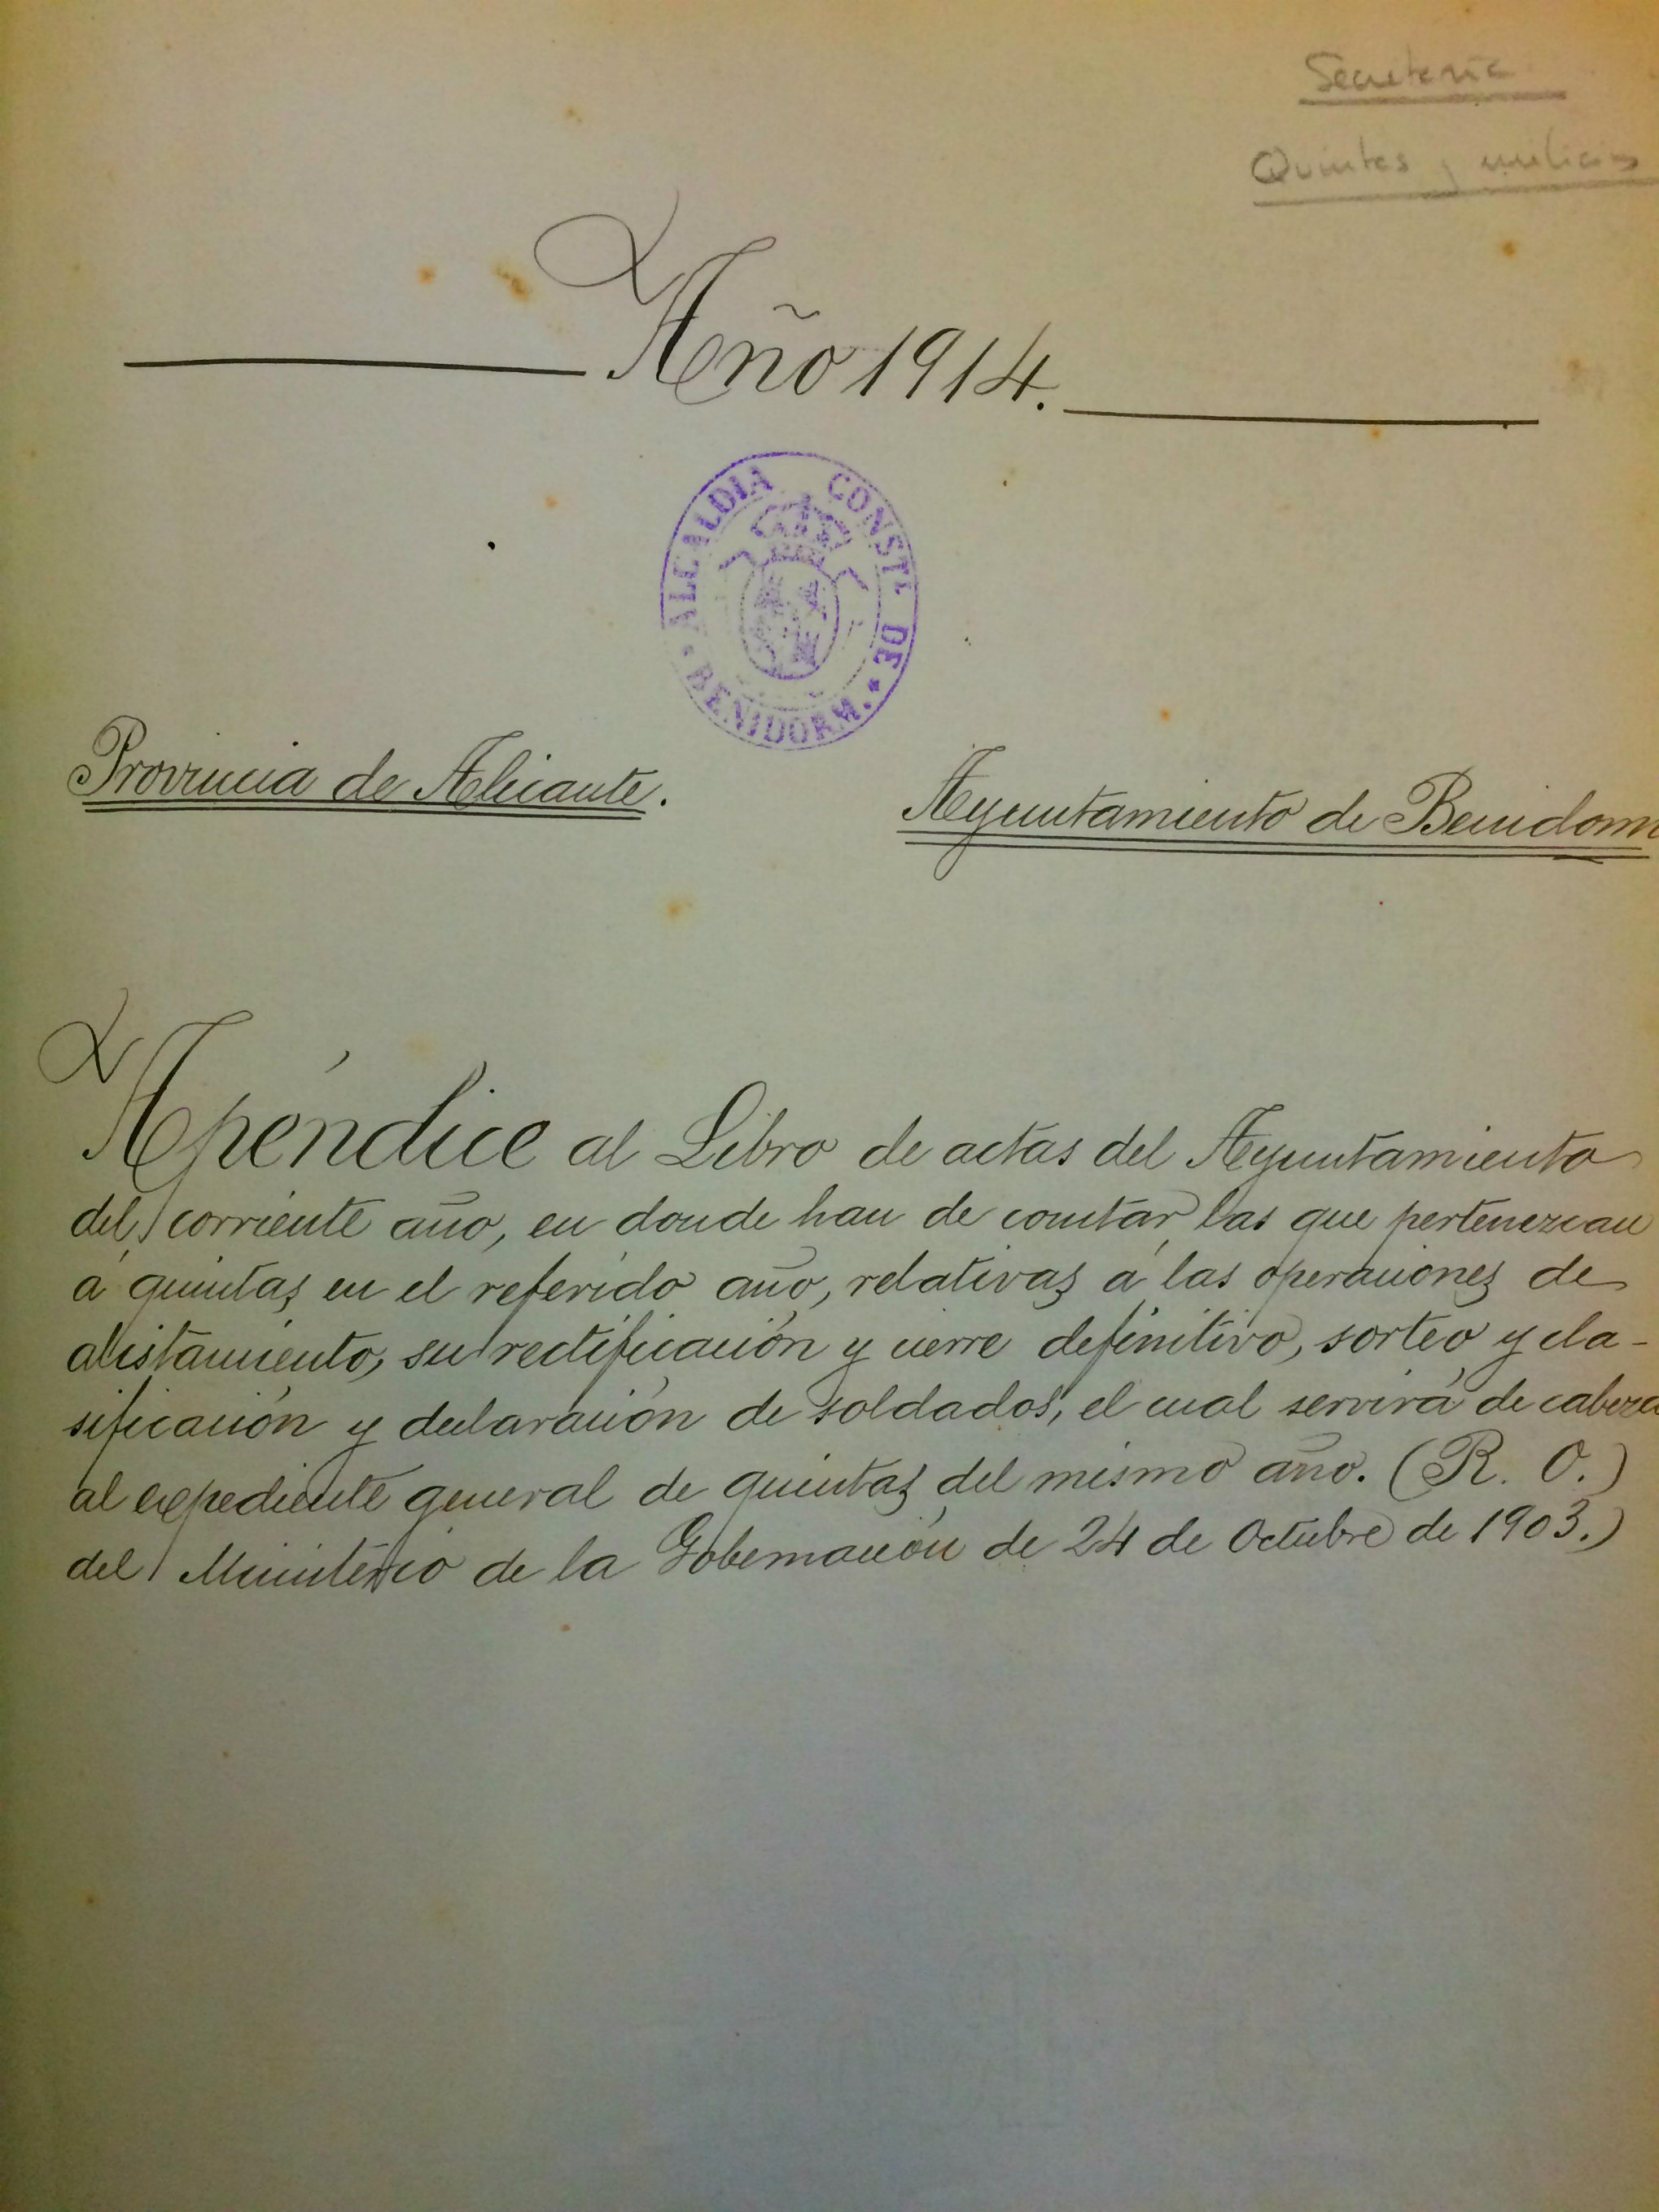 Secretaria
Quintas y milicias
Año 1914.
ALCALDIA CONSTL. DE
BENIDORM.
Provincia de Alicante.
Ayuntamiento de Benidorm
Apéndice al Libro de actas del Ayuntamiento
del corriente año, en donde han de constar, las que pertenezcan
á quintas en el referido año, relativas á las operaciones de
alistamiento, su rectificación y cierre definitivo, sorteo y cla-
sificación y declaración de soldados, el cual servirá de cabeza
al expediente general de quintas del mismo año. (R. O.)
del Ministerio de la Gobernación de 24 de Octubre de 1903.)